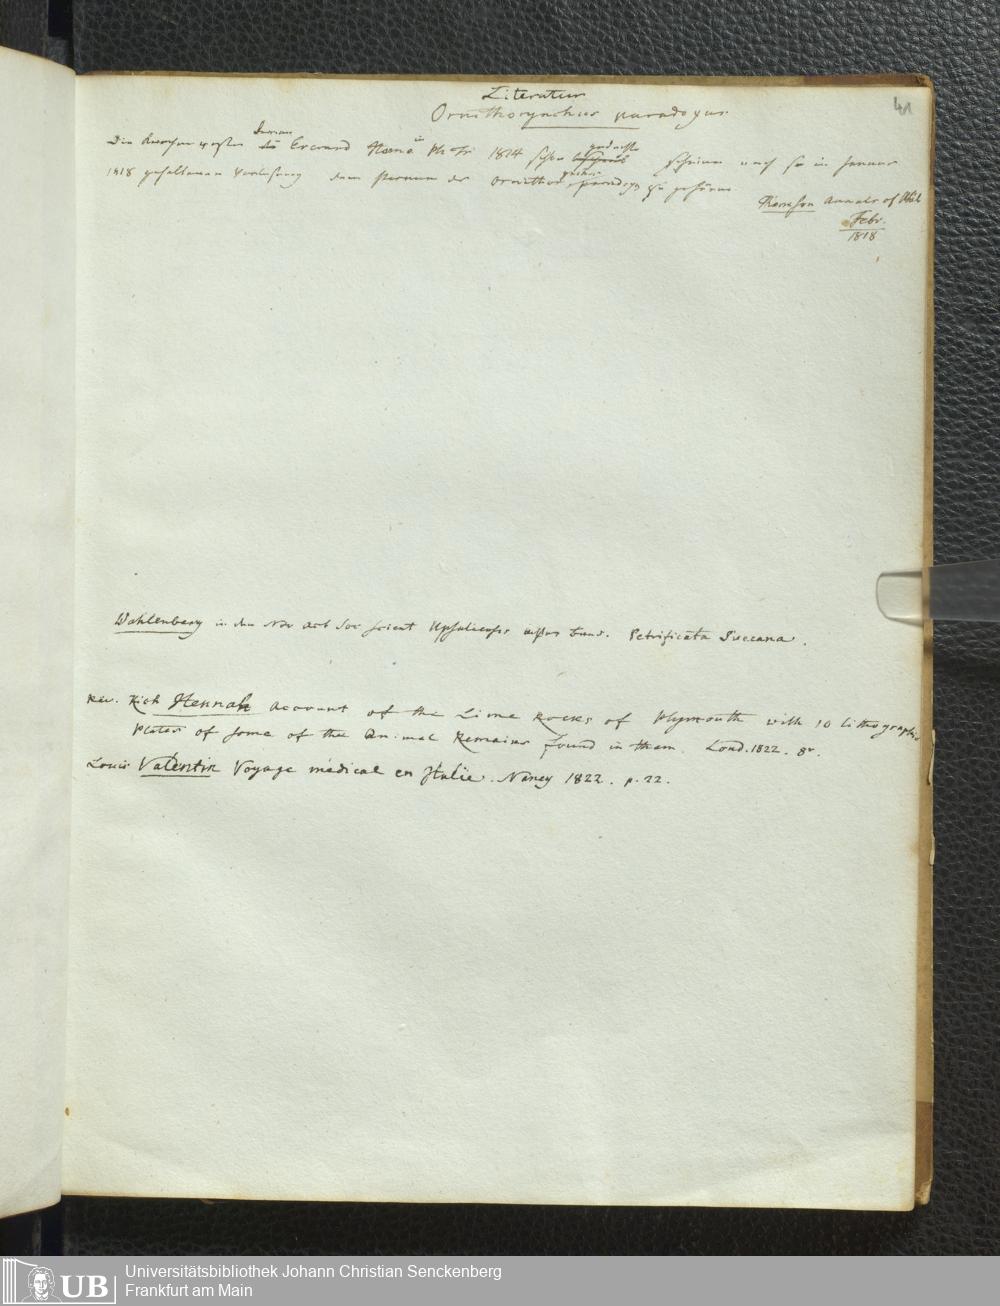 41
Literatur
Ornithorynchus paradoxus.
Die Knochen Everard Home in Ph. Tr. 1814 schon gedachte scheinen nach sr im Januar
1818 gehaltenen Vorlesung dem sternum des Ornithorynchus paradox zu gehören.
Thomson Annals of Phil
Febr.
1818
Wahlenberg in den Nov Act Soc Scient Upsaliensis Band. Petrificata Suecana.
Rev. Rich Hennah Account of the Lime Rocks of Plymouth with 10 lithographic
Plates of some of the Animal Remains found in them. Lond. 1822. 8v.
Louis Valentin Voyage médical en Italie. Nancy 1822. p. 22.
UB
Universitätsbibliothek Johann Christian Senckenberg
Frankfurt am Main